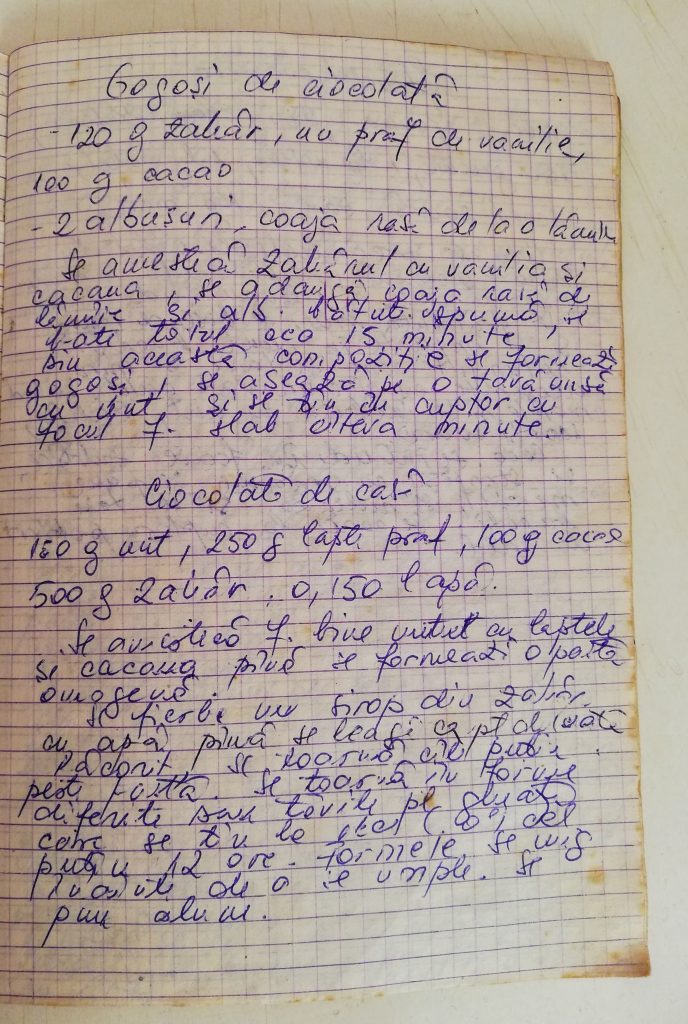 Gogoși de ciocolată
- 120 g zahăr, un praf de vanilie,
100 g cacao
- 2 albușuri, coaja rasă de la o lămîie
Se amestecă zahărul cu vanilia și
cacaua, se adaugă coaja rasă de
lămîie și alb. bătut spumă, se
bate totul cca 15 minute,
din această compoziție se formează
gogoși, se așează pe o tavă unsă
cu unt, și se țin în cuptor cu
focul f. slab câteva minute.
Ciocolată de casă
150 g unt, 250 g lapte praf, 100 g cacao
500 g zahăr, 0,150 l apă.
Se amestecă f. bine untul cu laptele
și cacaua pînă se formează o pastă
omogenă.
Se fierbe un sirop din zahăr
cu apă pînă se leagă ca pt dulceață
Răcorit se toarnă cîte puțin
peste pastă. Se toarnă în forme
diferite sau tăvițe pe
care se țin la rece ( ) cel
puțin 12 ore. Formele se ung
de a se umple. Se
pun alune.